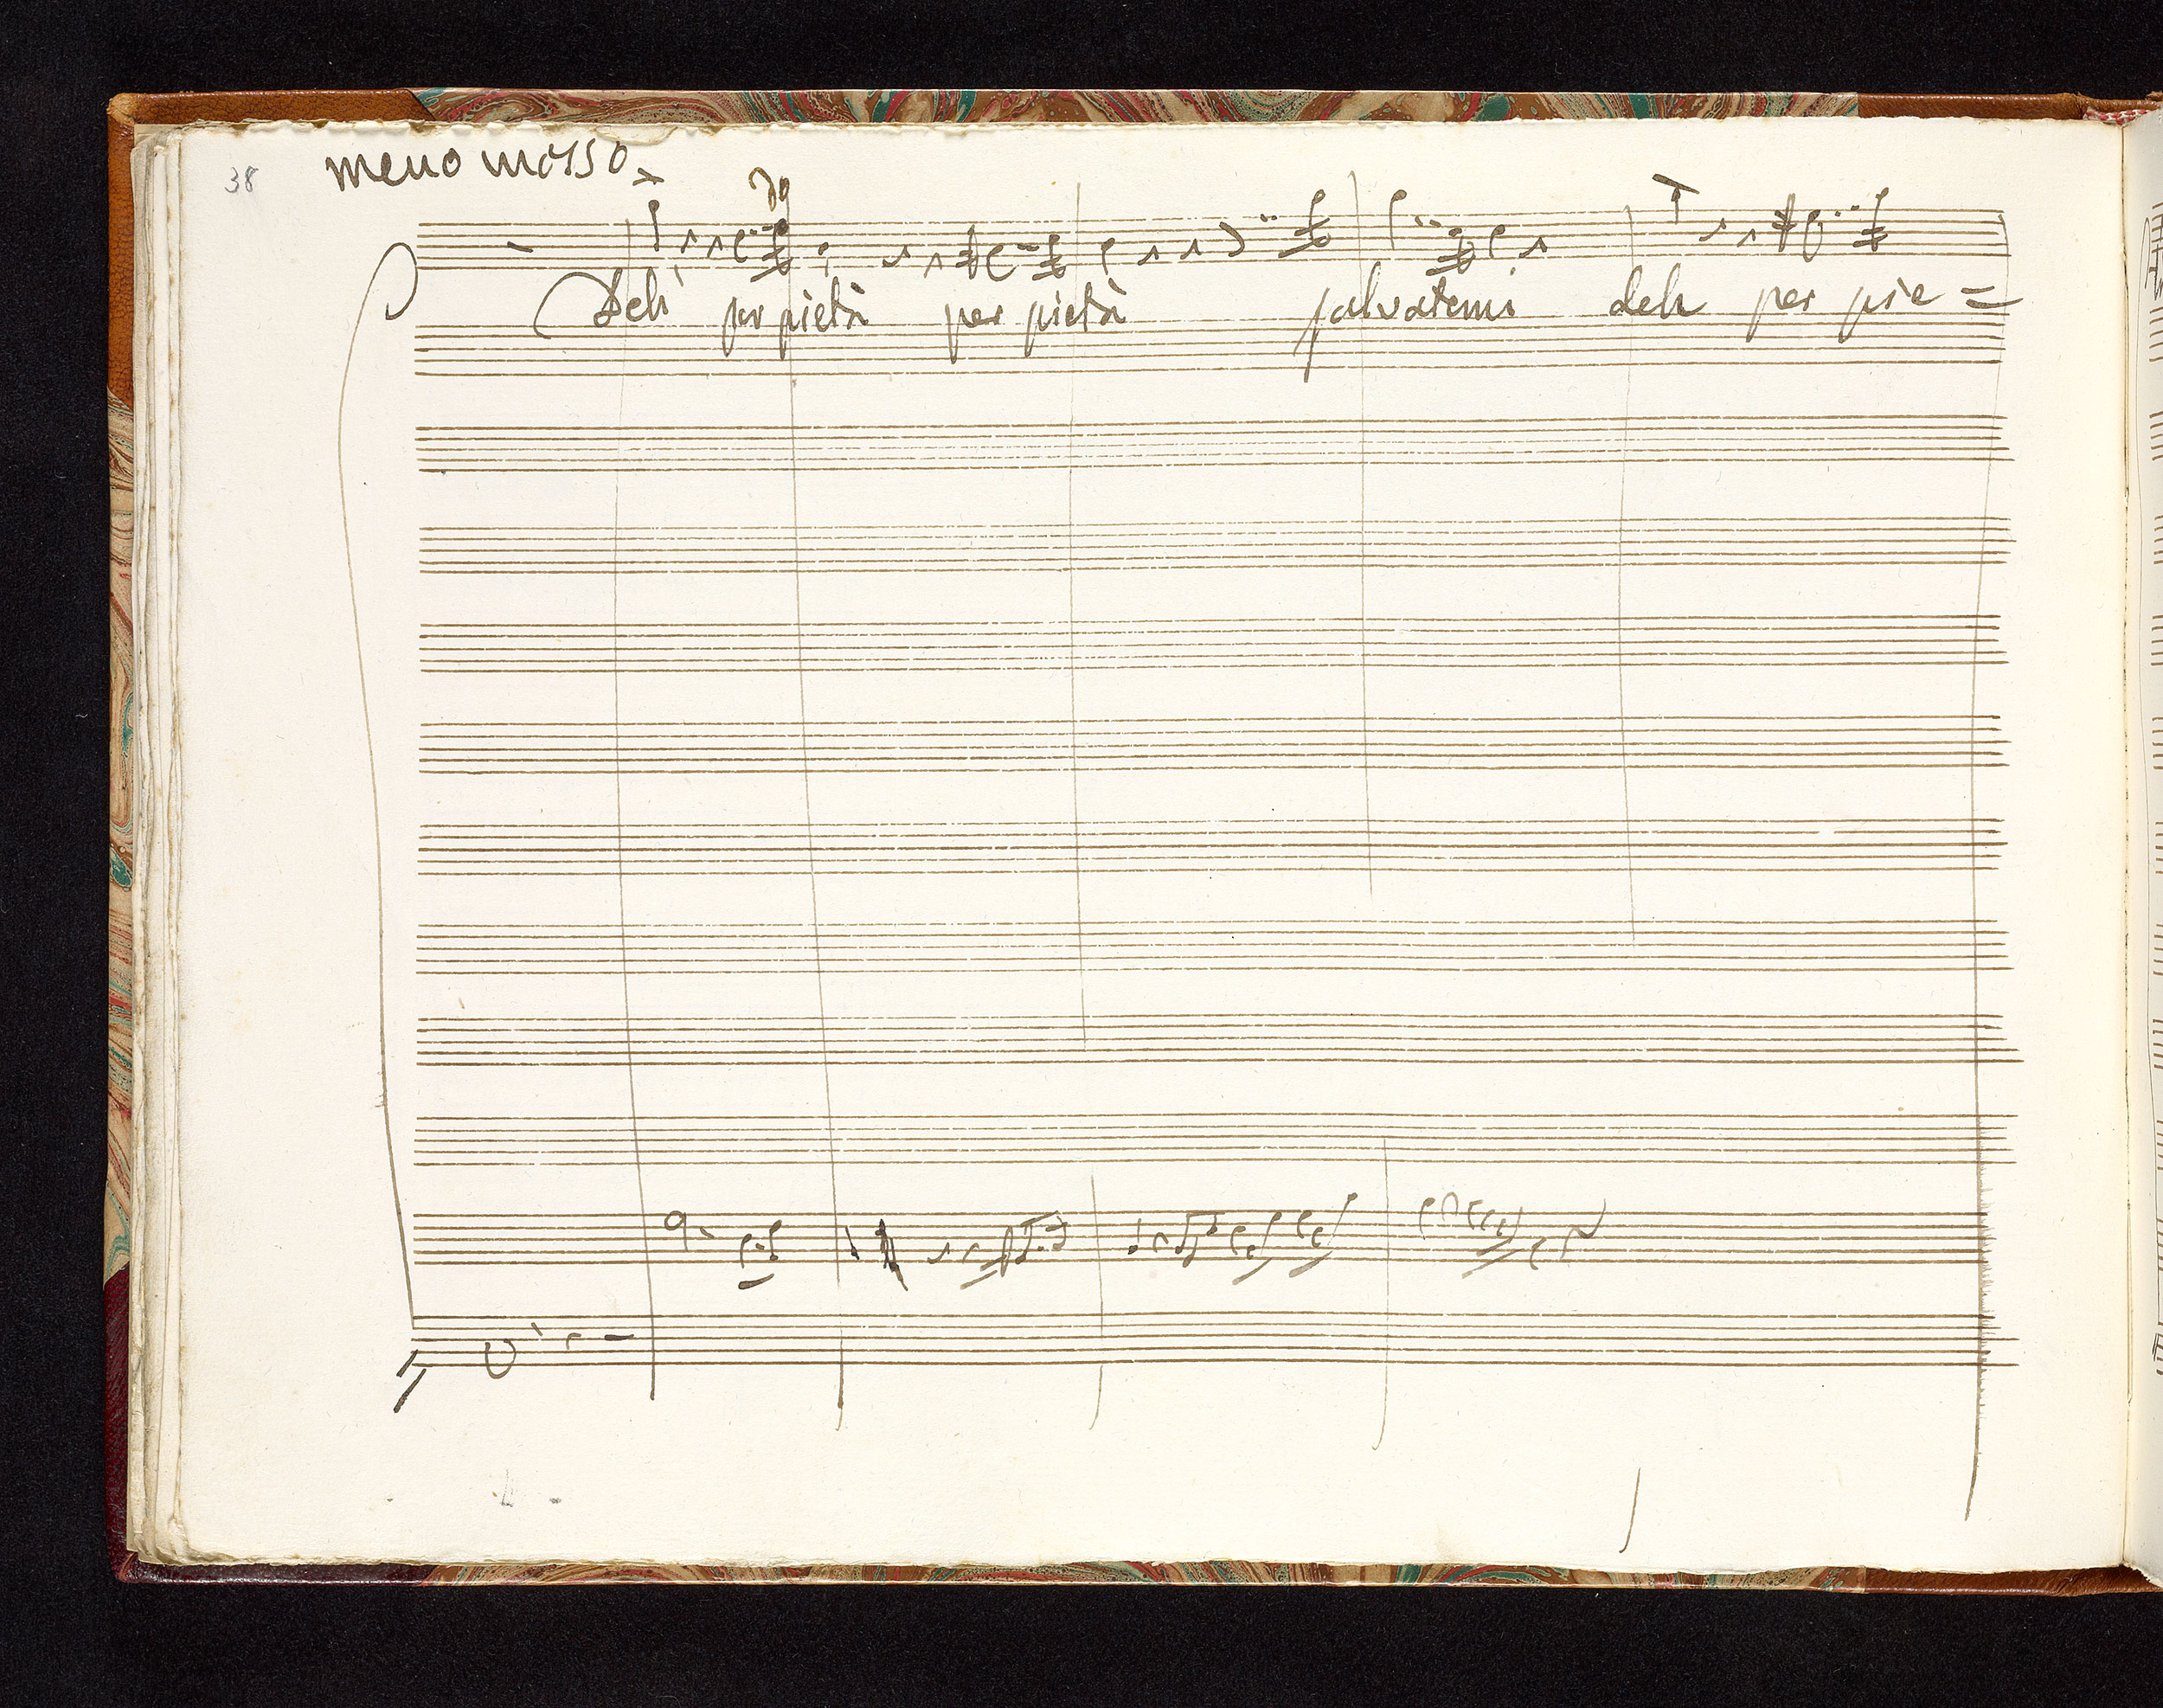 38 meno mosso
Deh per pietà per pietà salvatemi deh per pie =